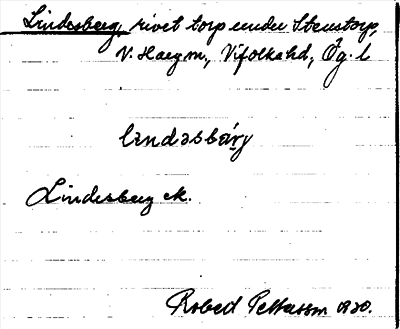 Lindesberg, rivet torp under Stenstorp,
V. Harg sn., Vifolka hd, Ög. l
lındəsbárj
Lindesberg ek.
Robert Pettersson 1930.